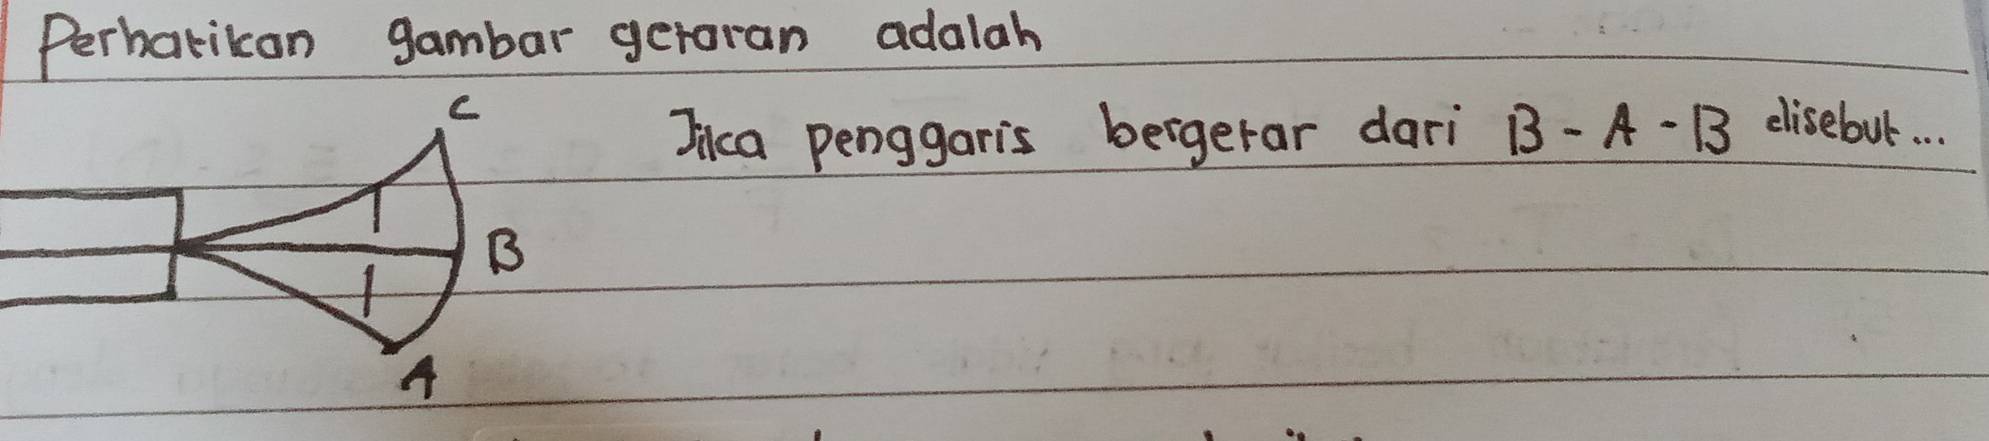 Perhatikan gambar getaran adalah
C
Jika penggaris bergetar dari B - A - B disebut...
B
A